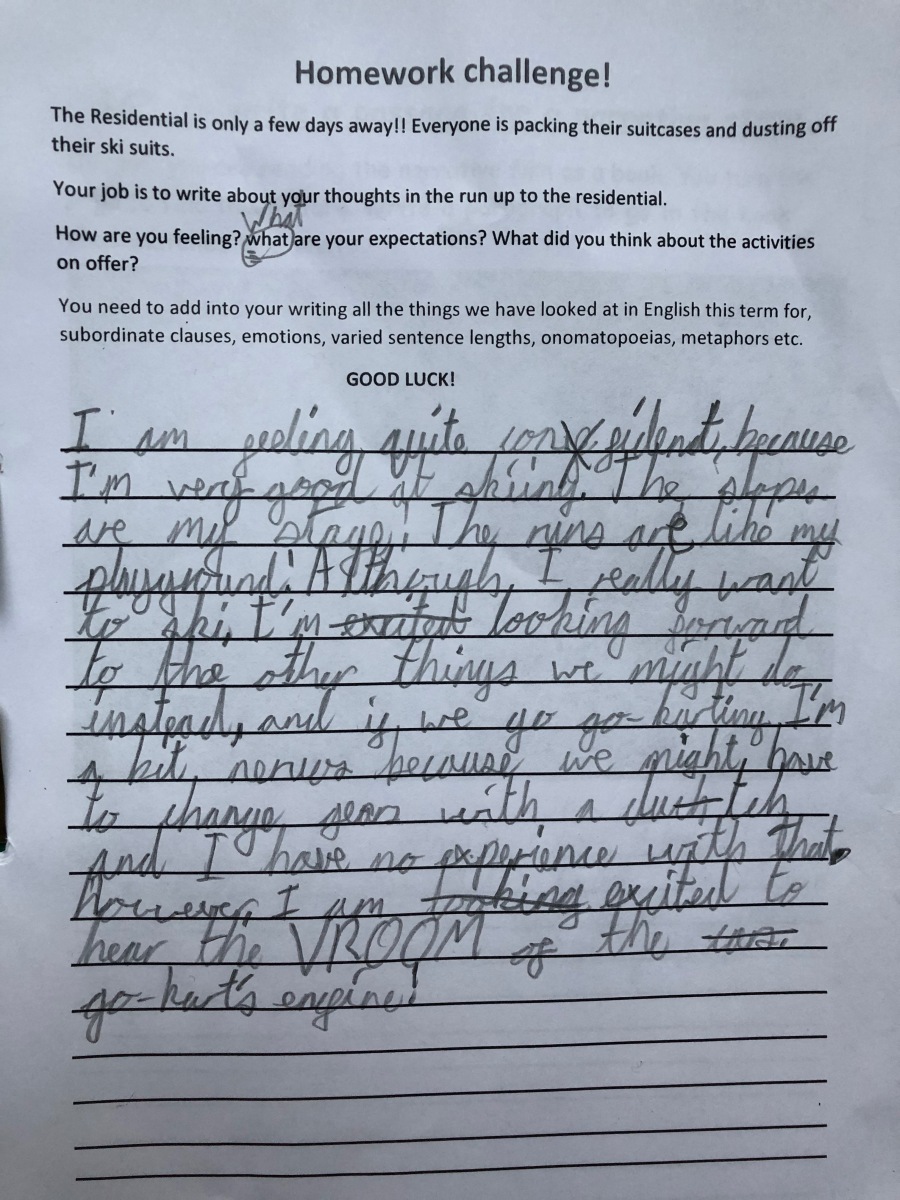 Homework challenge!
The Residential is only a few days away!! Everyone is packing their suitcases and dusting off
their ski suits.
Your job is to write about your thoughts in the run up to the residential.
What
How are you feeling? what are your expectations? What did you think about the activities
on offer?
You need to add into your writing all the things we have looked at in English this term for,
subordinate clauses, emotions, varied sentence lengths, onomatopoeias, metaphors etc.
GOOD LUCK!
I am feeling quite confident, because
I'm very good at skiing. The slopes
are my stage! The runs are like my
playground! Although, I really want
to ski, I'm looking forward
to the other things we might do
instead, and if we go go-karting I'm
a bit nervus because we might have
to change gears with a clutch
and I have no experience with that.
however, I am exited to
hear the VROOM of the
go-kart's engine!